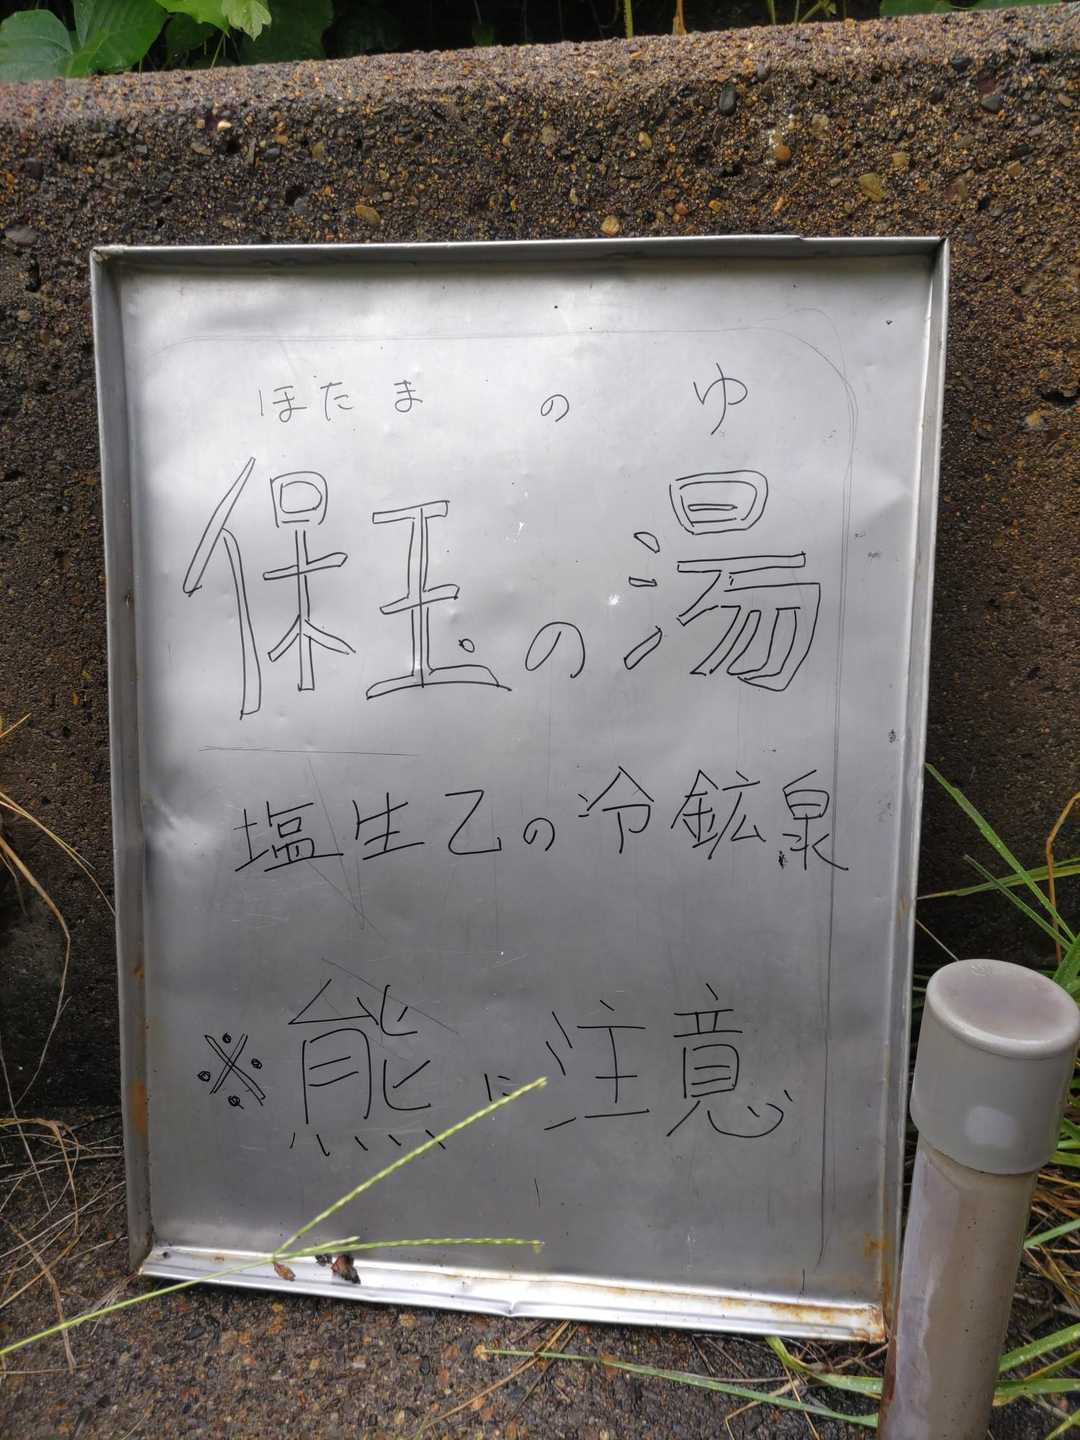 ほたま の ゆ
保玉の湯
塩生乙の冷鉱泉
※熊に注意